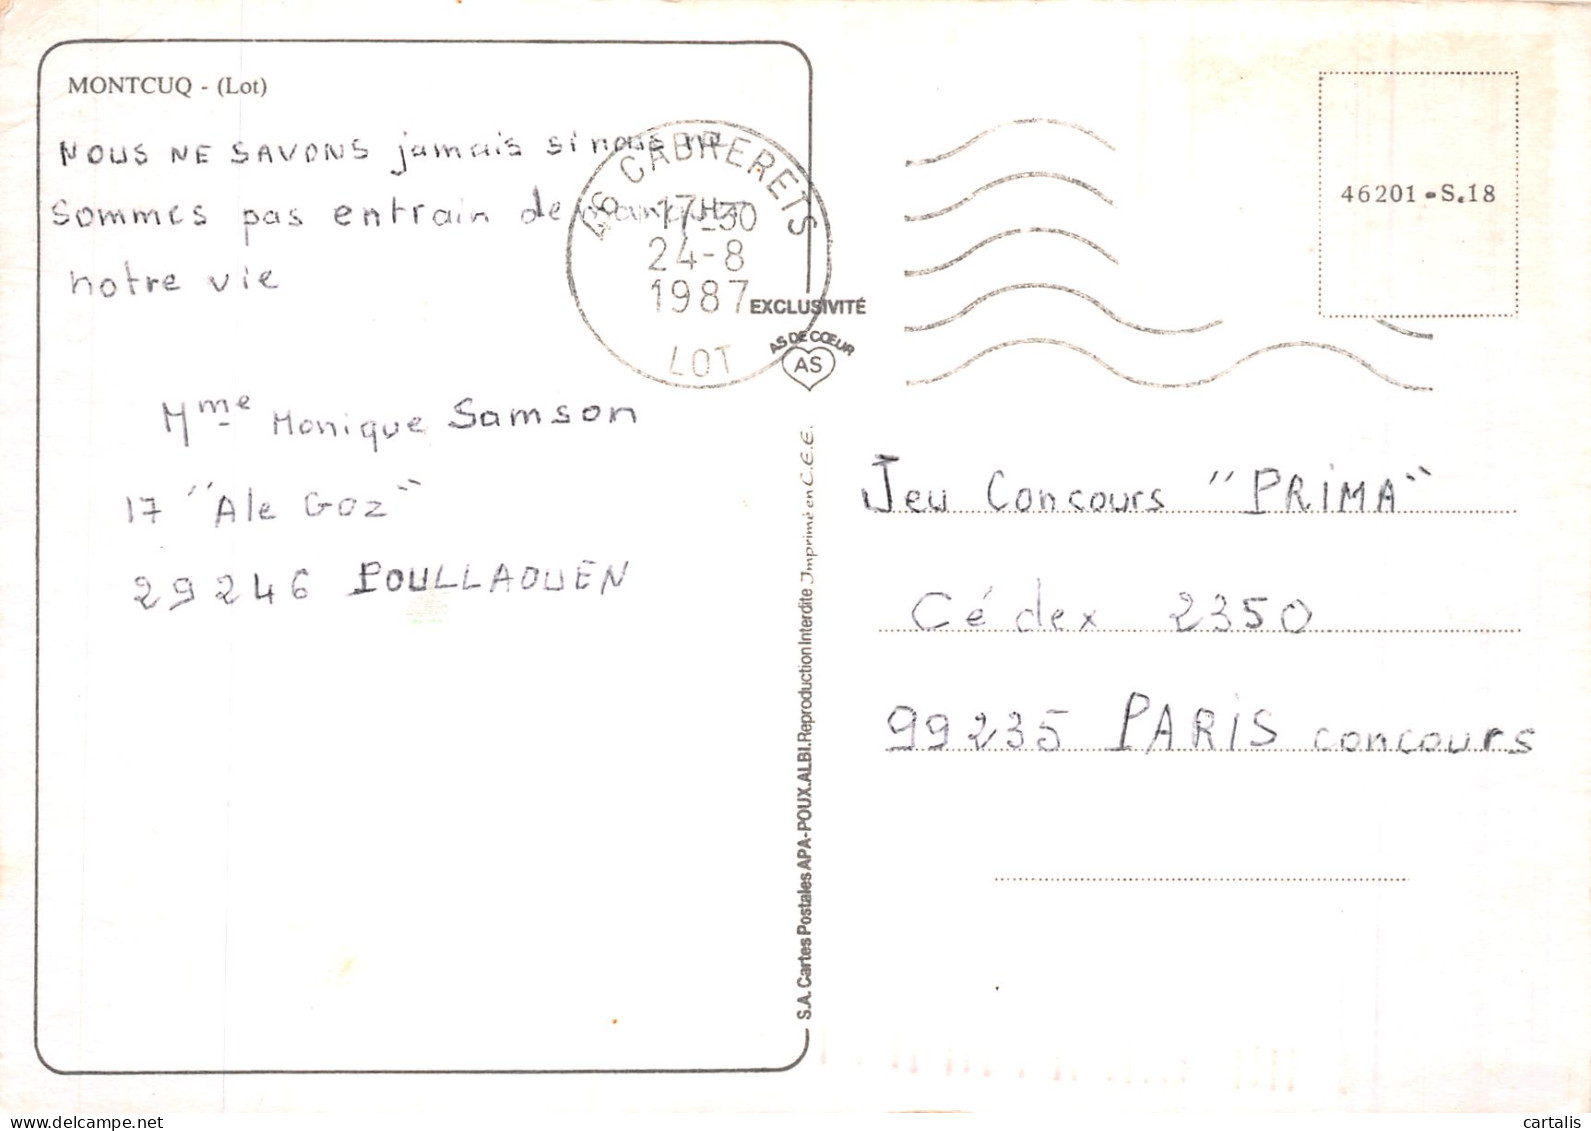 MONTCUQ - (Lot)
NOUS NE SAVONS jamais si nous ne
sommes pas entrain de manquer
notre vie
Mme Monique Samson
17 "Ale Goz"
29246 POULLAOUEN
46 CABRERETS
17H30
24-8
1987
LOT
EXCLUSIVITÉ
AS DE CŒUR
AS
S.A. Cartes Postales APA-POUX.ALBI.Reproduction Interdite Imprimé en C.E.E.
46201 - S.18
Jeu Concours "PRIMA"
Cédex 2350
99235 PARIS concours
delcampe.net
cartalis